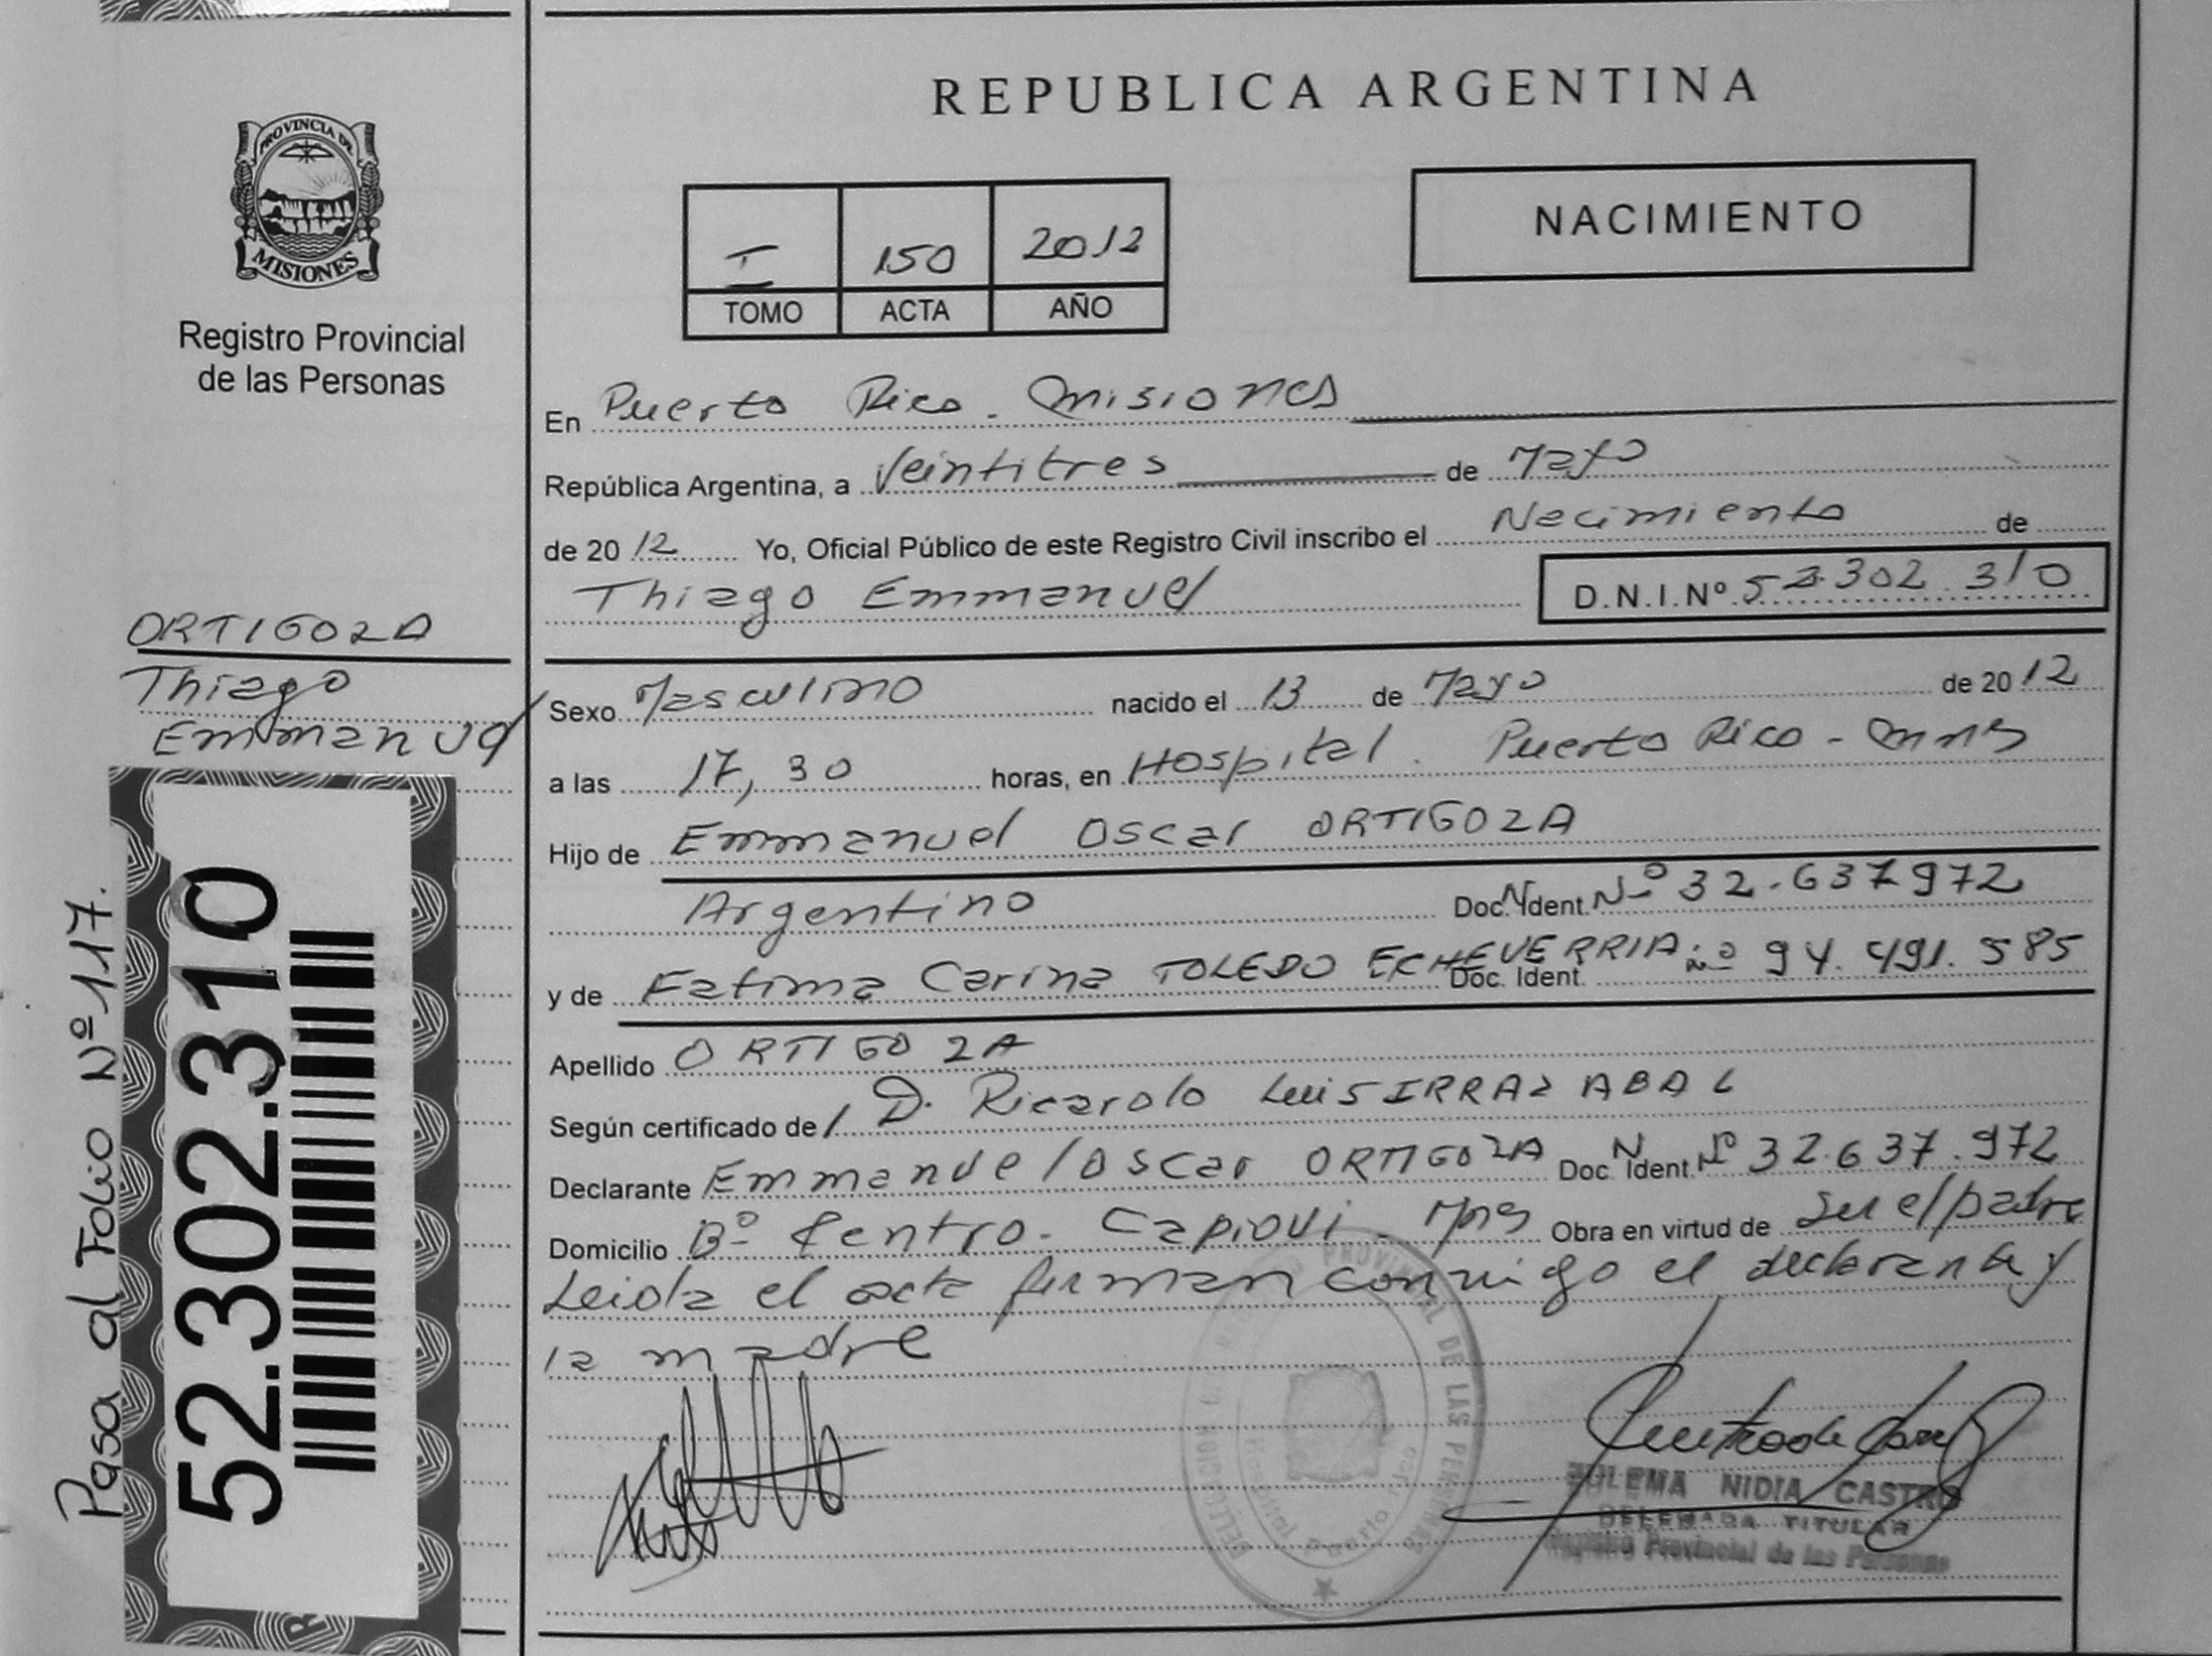 REPUBLICA ARGENTINA
PROVINCIA DE
MISIONES
Registro Provincial
de las Personas
I 150 2012
TOMO ACTA AÑO
NACIMIENTO
En Puerto Rico - Misiones
República Argentina, a Veintitres de Mayo
de 2012 Yo, Oficial Público de este Registro Civil inscribo el Nacimiento de
Thiago Emmanuel D.N.I.Nº 52.302.310
ORTIGOZA
Thiago
Emmanuel
Sexo Masculino nacido el 13 de Mayo de 2012
a las 17,30 horas, en Hospital. Puerto Rico - Mnes
Hijo de Emmanuel Oscar ORTIGOZA
Argentino Doc. Ident. Nº 32.637972
y de Fatima Carina TOLEDO ECHEVERRIA Doc. Ident. nº 94.491.585
Apellido ORTIGOZA
Según certificado de D. Ricardo Luis IRRAZABAL
Declarante Emmanuel Oscar ORTIGOZA Doc. Ident. Nº 32.637.972
Domicilio Bº Centro - Capiovi - Mnes Obra en virtud de ser el padre
Leida el acta firman conmigo el declarante y
la madre
Pasa al Folio Nº 117.
52.302.310
PROVINCIAL DE LAS PERSONAS
Hospital Puerto Rico
ZULEMA NIDIA CASTRO
DELEGADA TITULAR
Registro Provincial de las Personas